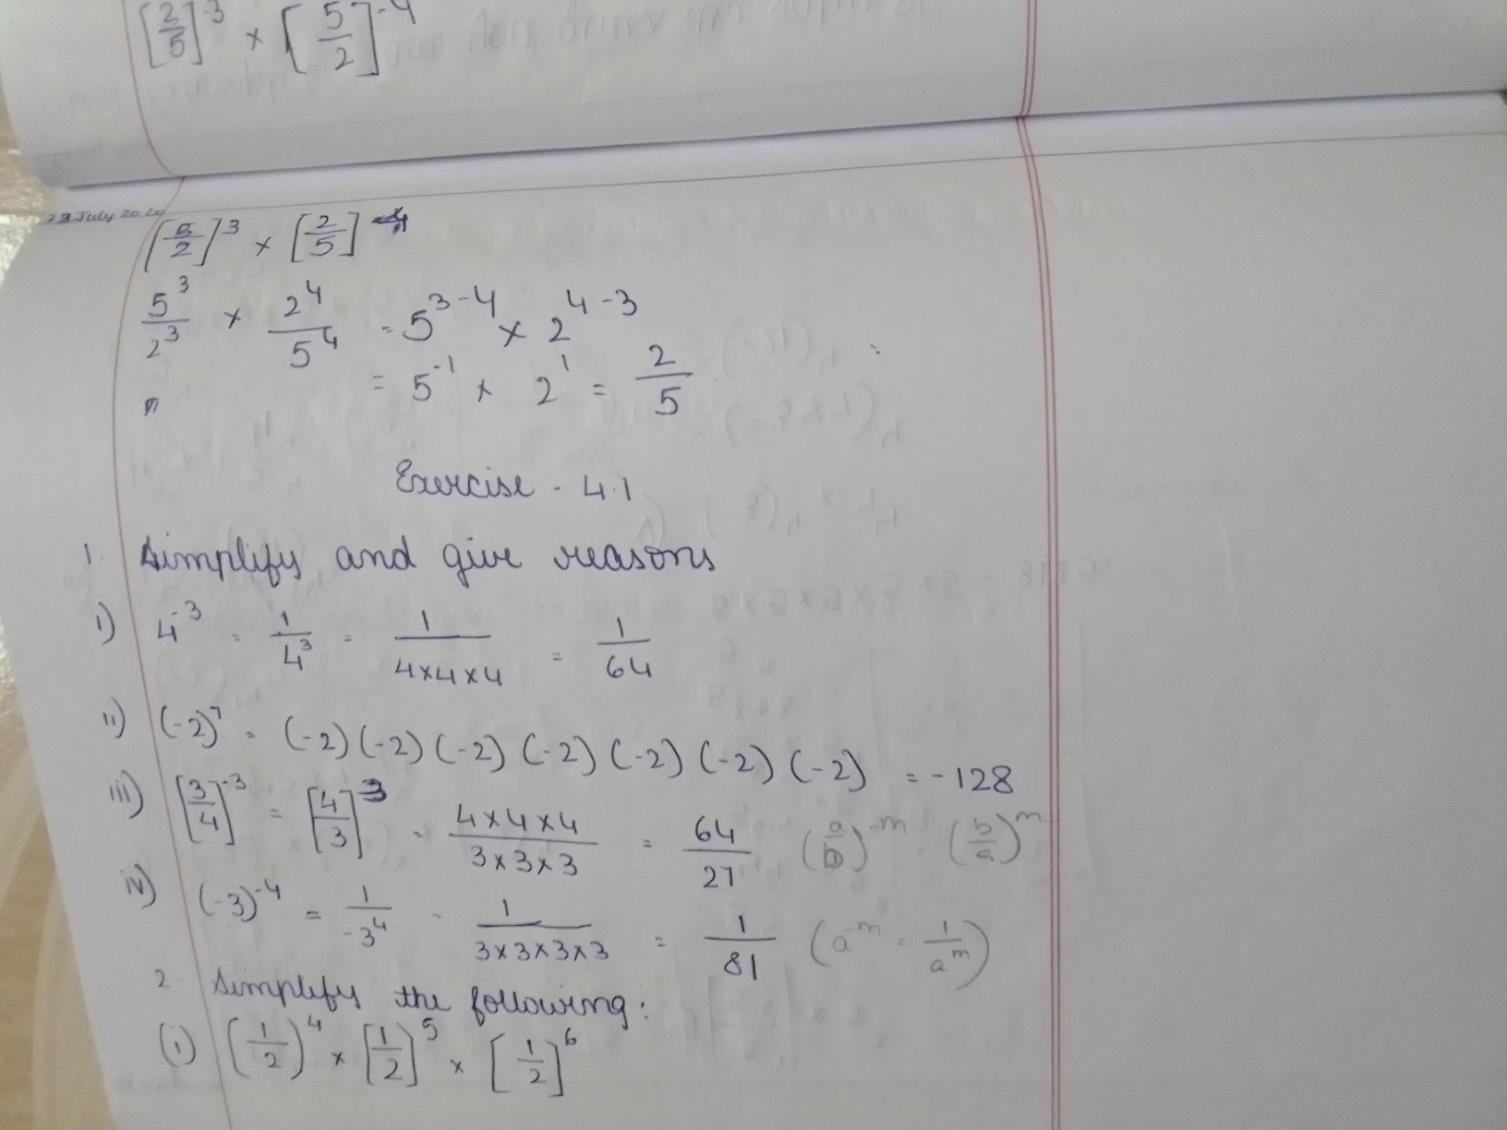 [2/5]^-3 × [5/2]^-4
[5/2]^3 × [2/5]^4
5^3/2^3 × 2^4/5^4 = 5^3-4 × 2^4-3
= 5^-1 × 2^1 = 2/5
Exercise - 4.1
1. Simplify and give reasons
i) 4^-3 = 1/4^3 = 1/4×4×4 = 1/64
ii) (-2)^7 = (-2)(-2)(-2)(-2)(-2)(-2)(-2) = -128
iii) [3/4]^-3 = [4/3]^3 = 4×4×4/3×3×3 = 64/27 (a/b)^-m (b/a)^m
iv) (-3)^-4 = 1/-3^4 = 1/3×3×3×3 = 1/81 (a^-m = 1/a^m)
2. Simplify the following:
(i) (1/2)^4 × [1/2]^5 × [1/2]^6